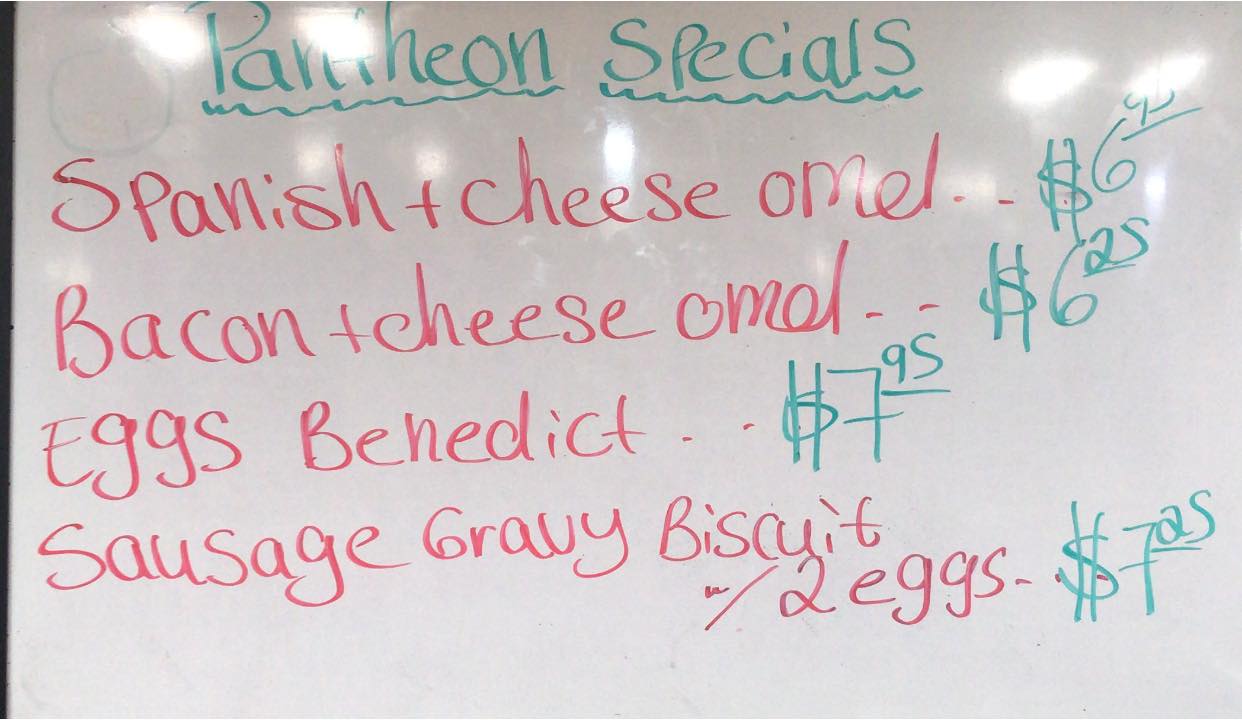 Pantheon Specials
Spanish + cheese omel.. $6
Bacon + cheese omel.. $6 25
Eggs Benedict.. $7 95
Sausage Gravy Biscuit
w/ 2 eggs.. $7 25